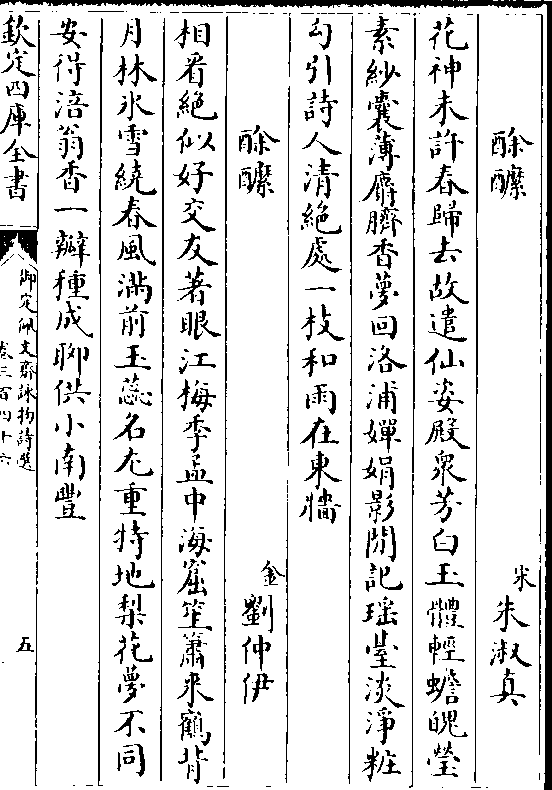 酴醾　宋朱淑真
花神未許春歸去故遣仙姿殿衆芳白玉體輕蟾魄瑩
素紗囊薄麝臍香夢回洛浦嬋娟影閒記瑶臺淡淨粧
勾引詩人清絶處一枝和雨在東牆
酴醾　金劉仲伊
相看絶似好交友著眼江梅季孟中海窟笙簫来鶴背
月林氷雪繞春風滿前玉蕊名尤重特地梨花夢不同
安得涪翁香一瓣種成聊供小南豐
欽定四庫全書
御定佩文齋詠物詩選
卷三百四十六
五